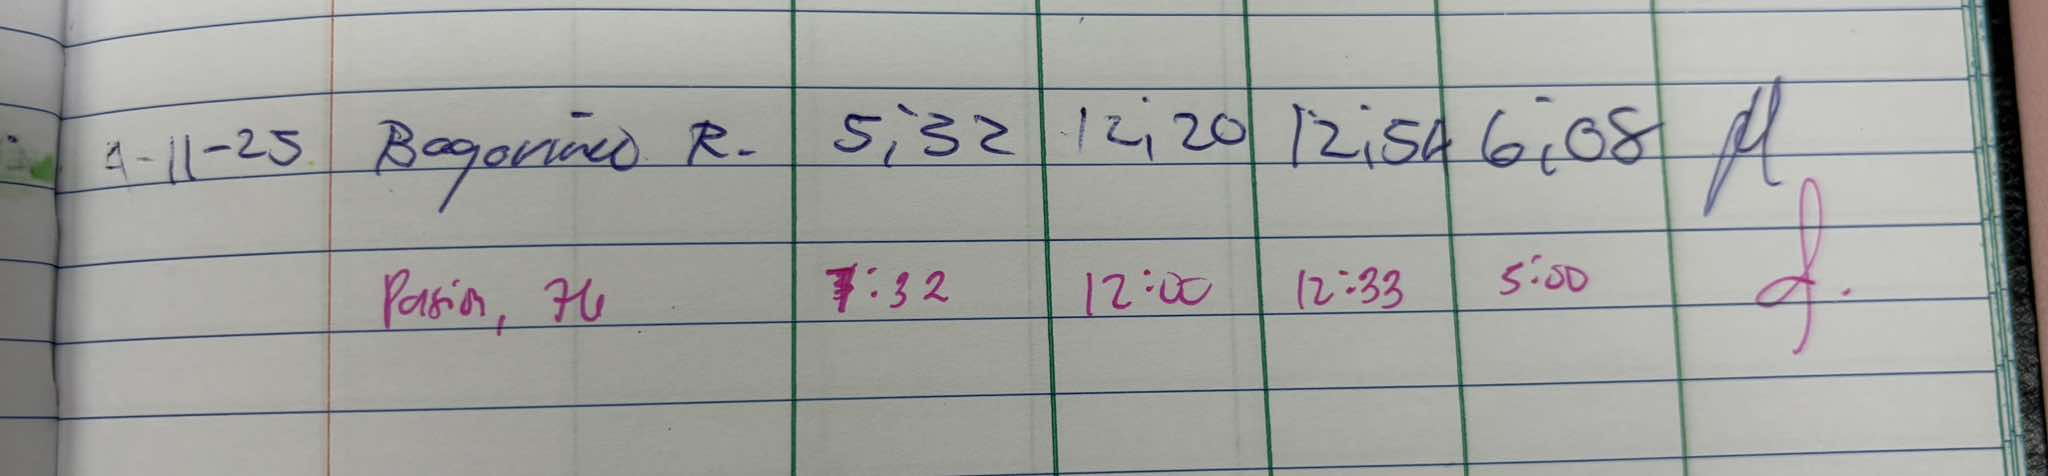 4-11-25 Bagorino R. 5;32 12;20 12;54 6;08
Pasion, 7:32 12:00 12:33 5:00